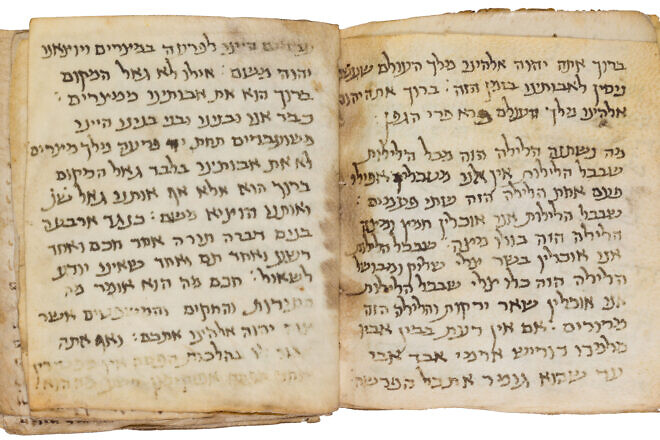 ברוך אתה יהוה אלהינו מלך העולם שעשה
ניסין לאבותינו בזמן הזה : ברוך אתה יהוה
אלהינו מלך העולם בורא פרי הגפן :
מה נשתנה הלילה הזה מכל הלילות
שבכל הלילות אין אנו מטבילין אפילו
פעם אחת הלילה הזה שתי פעמים :
שבכל הלילות אנו אוכלין חמץ ומצה
הלילה הזה כולו מצה : שבכל הלילות
אנו אוכלין בשר צלי שלוק ומבושל
והלילה הזה כלו צלי שבכל הלילות
אנו אוכלין שאר ירקות והלילה הזה
מרורים : אם אין דעת בבין אביו
מלמדו דוריש ארמי אבד אבי
עד שהוא גומר את כל הפרשה
היינו לפרעה במצרים ויוציאנו
יהוה משם : אילו לא גאל המקום
ברוך הוא את אבותינו ממצרים :
כבר אנו ובנינו ובני בנינו היינו
משועבדים תחת יד פרעה מלך מצרים
לא את אבותינו בלבד גאל המקום
ברוך הוא אלא אף אותנו גאל שנ
ואותנו הוציא משם : כנגד ארבעה
בנים דברה תורה אחד חכם ואחד
רשע ואחד תם ואחד שאינו יודע
לשאול : חכם מה הוא אומר מה
העדות והחקים והמשפטים אשר
צוה יהוה אלהינו אתכם : ואף אתה
אמור לו בהלכות הפסח אין מפטירין
אחר הפסח אפיקומן רשע מה הוא